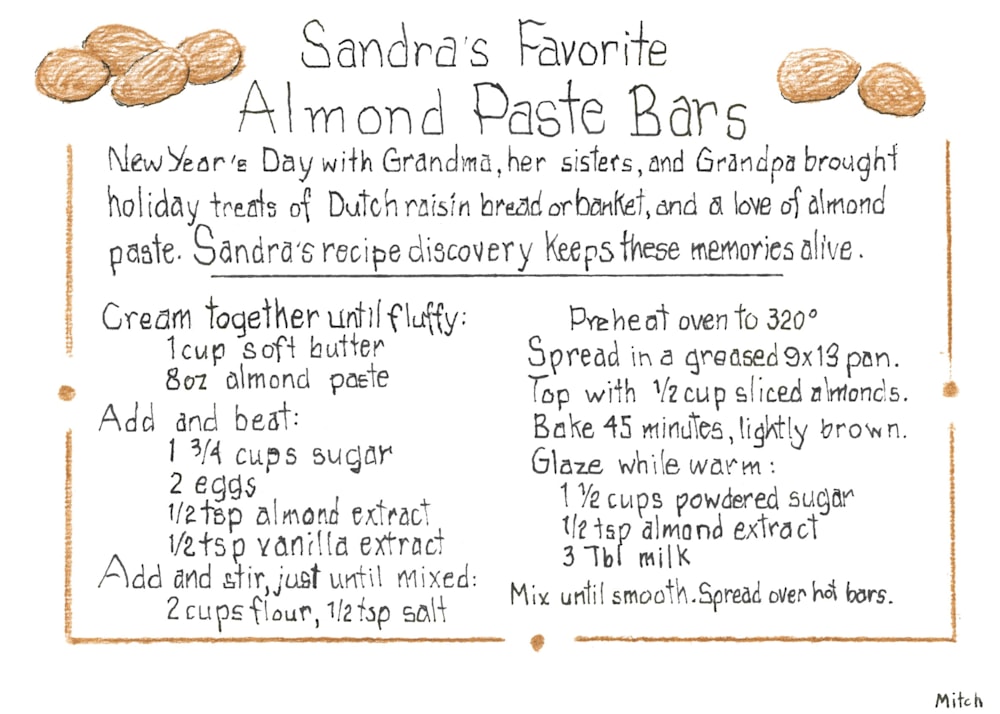 Sandra's Favorite
Almond Paste Bars
New Year's Day with Grandma, her sisters, and Grandpa brought
holiday treats of Dutch raisin bread or banket, and a love of almond
paste. Sandra's recipe discovery keeps these memories alive.
Cream together until fluffy:
1 cup soft butter
8oz almond paste
Add and beat:
1 3/4 cups sugar
2 eggs
1/2 tsp almond extract
1/2 tsp vanilla extract
Add and stir, just until mixed:
2 cups flour, 1/2 tsp salt
Preheat oven to 320°
Spread in a greased 9x13 pan.
Top with 1/2 cup sliced almonds.
Bake 45 minutes, lightly brown.
Glaze while warm:
1 1/2 cups powdered sugar
1/2 tsp almond extract
3 Tbl milk
Mix until smooth. Spread over hot bars.
Mitch